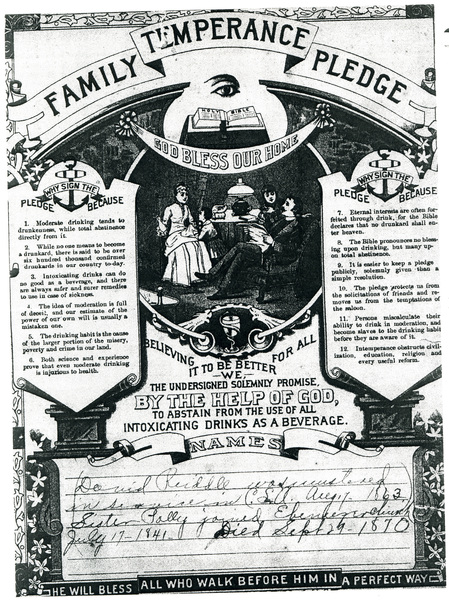 FAMILY TEMPERANCE PLEDGE
HOLY BIBLE
GOD BLESS OUR HOME
WHY SIGN THE
PLEDGE BECAUSE
1. Moderate drinking tends to
drunkenness, while total abstinence
directly from it.
2. While no one means to become
a drunkard, there is said to be over
six hundred thousand confirmed
drunkards in our country to-day.
3. Intoxicating drinks can do
no good as a beverage, and there
are always safer and surer remedies
to use in case of sickness.
4. The idea of moderation is full
of deceit, and our estimate of the
power of our own will is usually a
mistaken one.
5. The drinking habit is the cause
of the larger portion of the misery,
poverty and crime in our land.
6. Both science and experience
prove that even moderate drinking
is injurious to health.
WHY SIGN THE
PLEDGE BECAUSE
7. Eternal interests are often for-
feited through drink, for the Bible
declares that no drunkard shall en-
ter heaven.
8. The Bible pronounces no bless-
ing upon drinking, but many up-
on total abstinence.
9. It is easier to keep a pledge
publicly, solemnly given than a
simple resolution.
10. The pledge protects us from
the solicitations of friends and re-
moves us from the temptations of
the saloon.
11. Persons miscalculate their
ability to drink in moderation, and
become slaves to the drinking habit
before they are aware of it.
12. Intemperance obstructs civil-
ization, education, religion and
every useful reform.
BELIEVING IT TO BE BETTER FOR ALL
WE
THE UNDERSIGNED SOLEMNLY PROMISE,
BY THE HELP OF GOD,
TO ABSTAIN FROM THE USE OF ALL
INTOXICATING DRINKS AS A BEVERAGE.
NAMES
David Ruddle was mustered
in service in Aug 17 1863
Sister Polly joined Ebenezer church
July 17-1841. Died Sept 29-1870
HE WILL BLESS ALL WHO WALK BEFORE HIM IN A PERFECT WAY